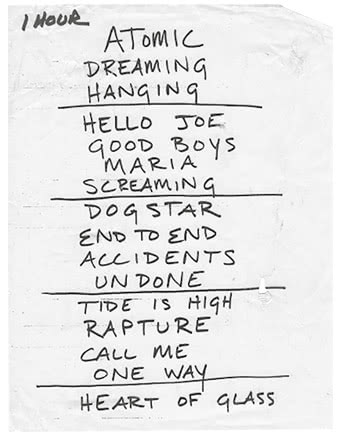 1 HOUR
ATOMIC
DREAMING
HANGING
HELLO JOE
GOOD BOYS
MARIA
SCREAMING
DOG STAR
END TO END
ACCIDENTS
UNDONE
TIDE IS HIGH
RAPTURE
CALL ME
ONE WAY
HEART OF GLASS